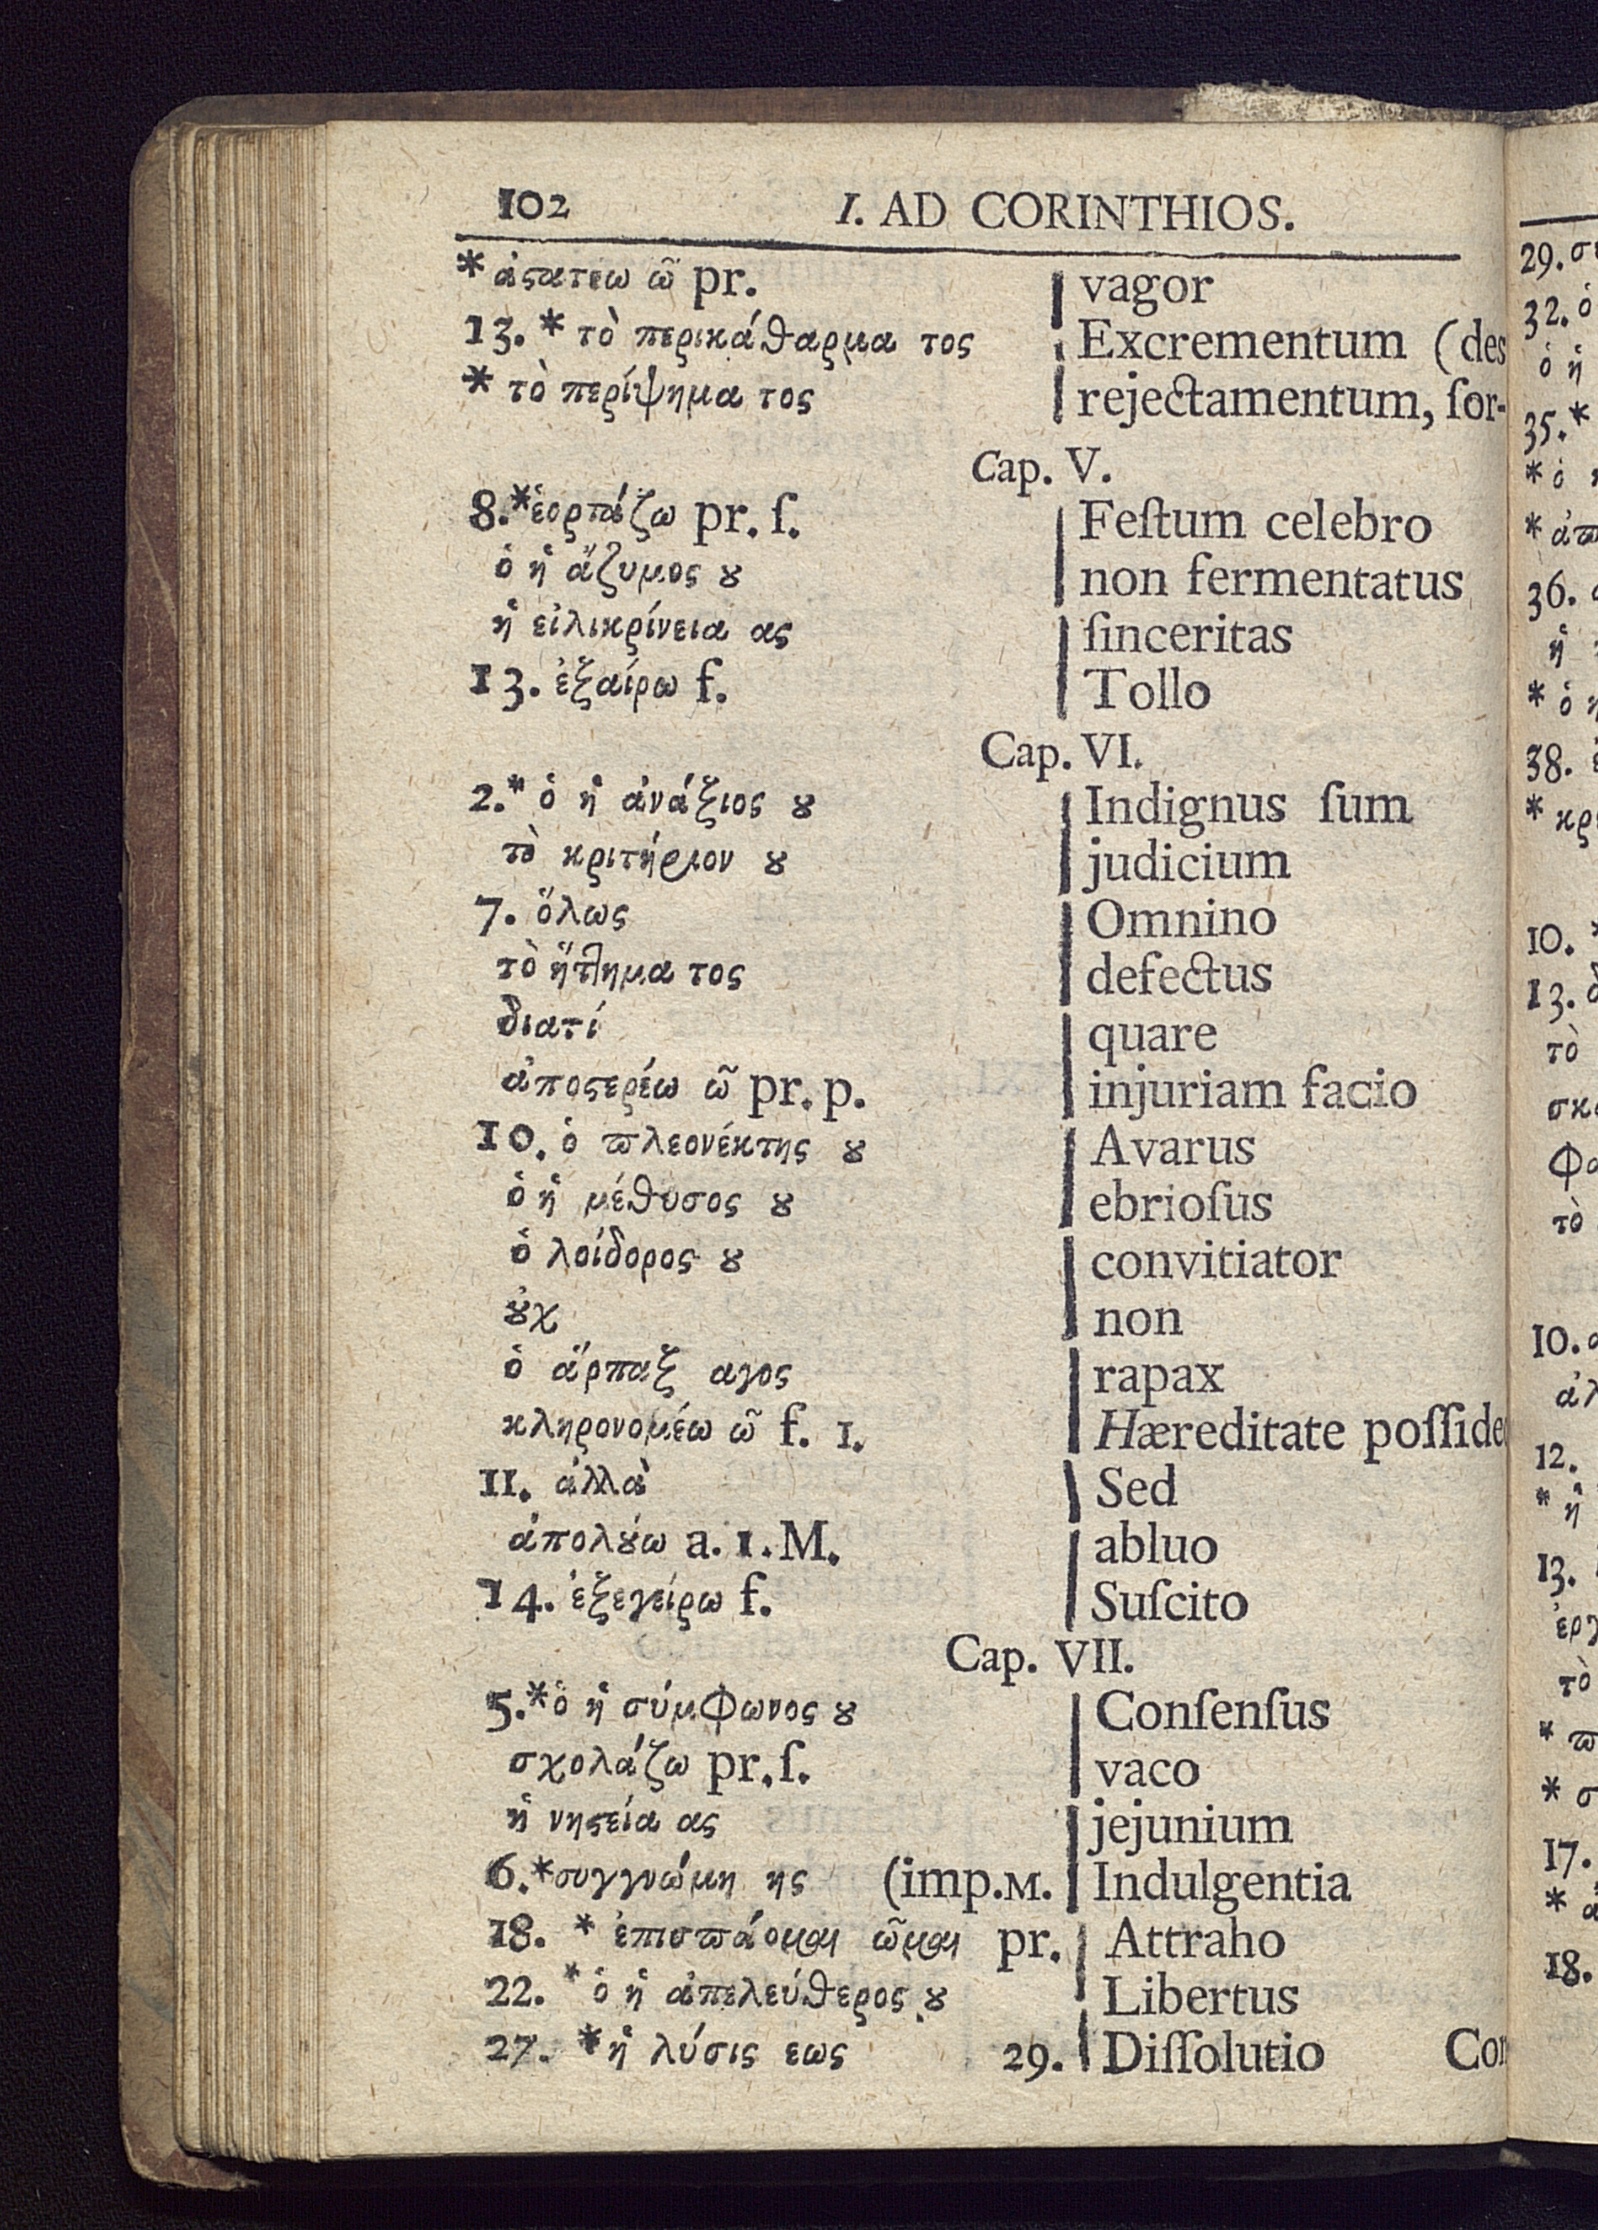 102 I. AD CORINTHIOS.
* ἀϛατέω ῶ pr. vagor
13. * τὸ περικάθαρμα τος Excrementum (des
* τὸ περίψημα τος rejectamentum, ſor-
Cap. V.
8.* ἑορτάζω pr. ſ. Feſtum celebro
ὁ ἡ ἄζυμος ȣ non fermentatus
ἡ εἰλικρίνεια ας ſinceritas
13. ἐξαίρω f. Tollo
Cap. VI.
2.* ὁ ἡ ἀνάξιος ȣ Indignus ſum
τὸ κριτήριον ȣ judicium
7. ὅλως Omnino
τὸ ἥττημα τος defectus
διατί quare
ἀποϛερέω ῶ pr. p. injuriam facio
10. ὁ ϖλεονέκτης ȣ Avarus
ὁ ἡ μέθυσος ȣ ebrioſus
ὁ λοίδορος ȣ convitiator
ȣ̓χ non
ὁ ἅρπαξ αγος rapax
κληρονομέω ῶ f. 1. Hæreditate poſſide
11. ἀλλὰ Sed
ἀπολȣ́ω a. 1. M. abluo
14. ἐξεγείρω f. Suſcito
Cap. VII.
5.* ὁ ἡ σύμφωνος ȣ Conſenſus
σχολάζω pr. ſ. vaco
ἡ νηϛεία ας jejunium
6.* συγγνώμη ης (imp.M. Indulgentia
18. * ἐπισϖάομαι ῶμαι pr. Attraho
22. * ὁ ἡ ἀπελεύθερος ȣ Libertus
27. * ἡ λύσις εως 29. Diſſolutio Con
29. σ
32. ὁ
ὁ ἡ
35. *
* ὁ
* ἀϖ
36.
ἡ
* ὁ
38.
* κρ
10. *
13. δ
τὸ
σκ
φα
τὸ
10.
ἀλ
12.
* ἡ
13.
ἐργ
τὸ
* ϖ
* σ
17.
* ἀ
18.